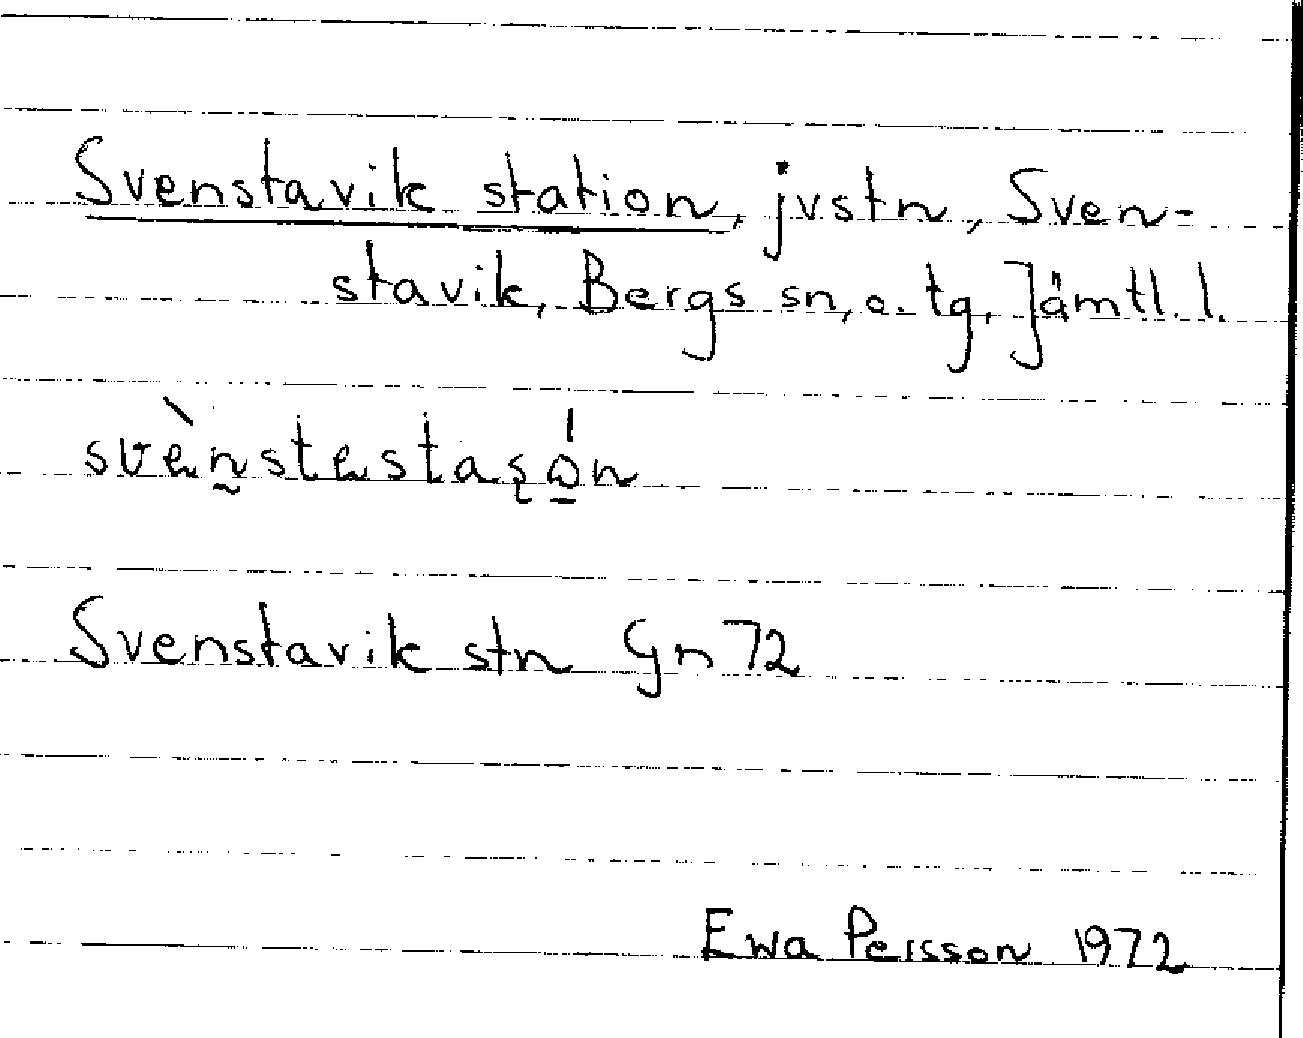 Svenstavik station, jvstn, Sven-
stavik, Bergs sn, o. tg, Jämtl. l.
Svenstavik stn Gn 72
Ewa Persson 1972